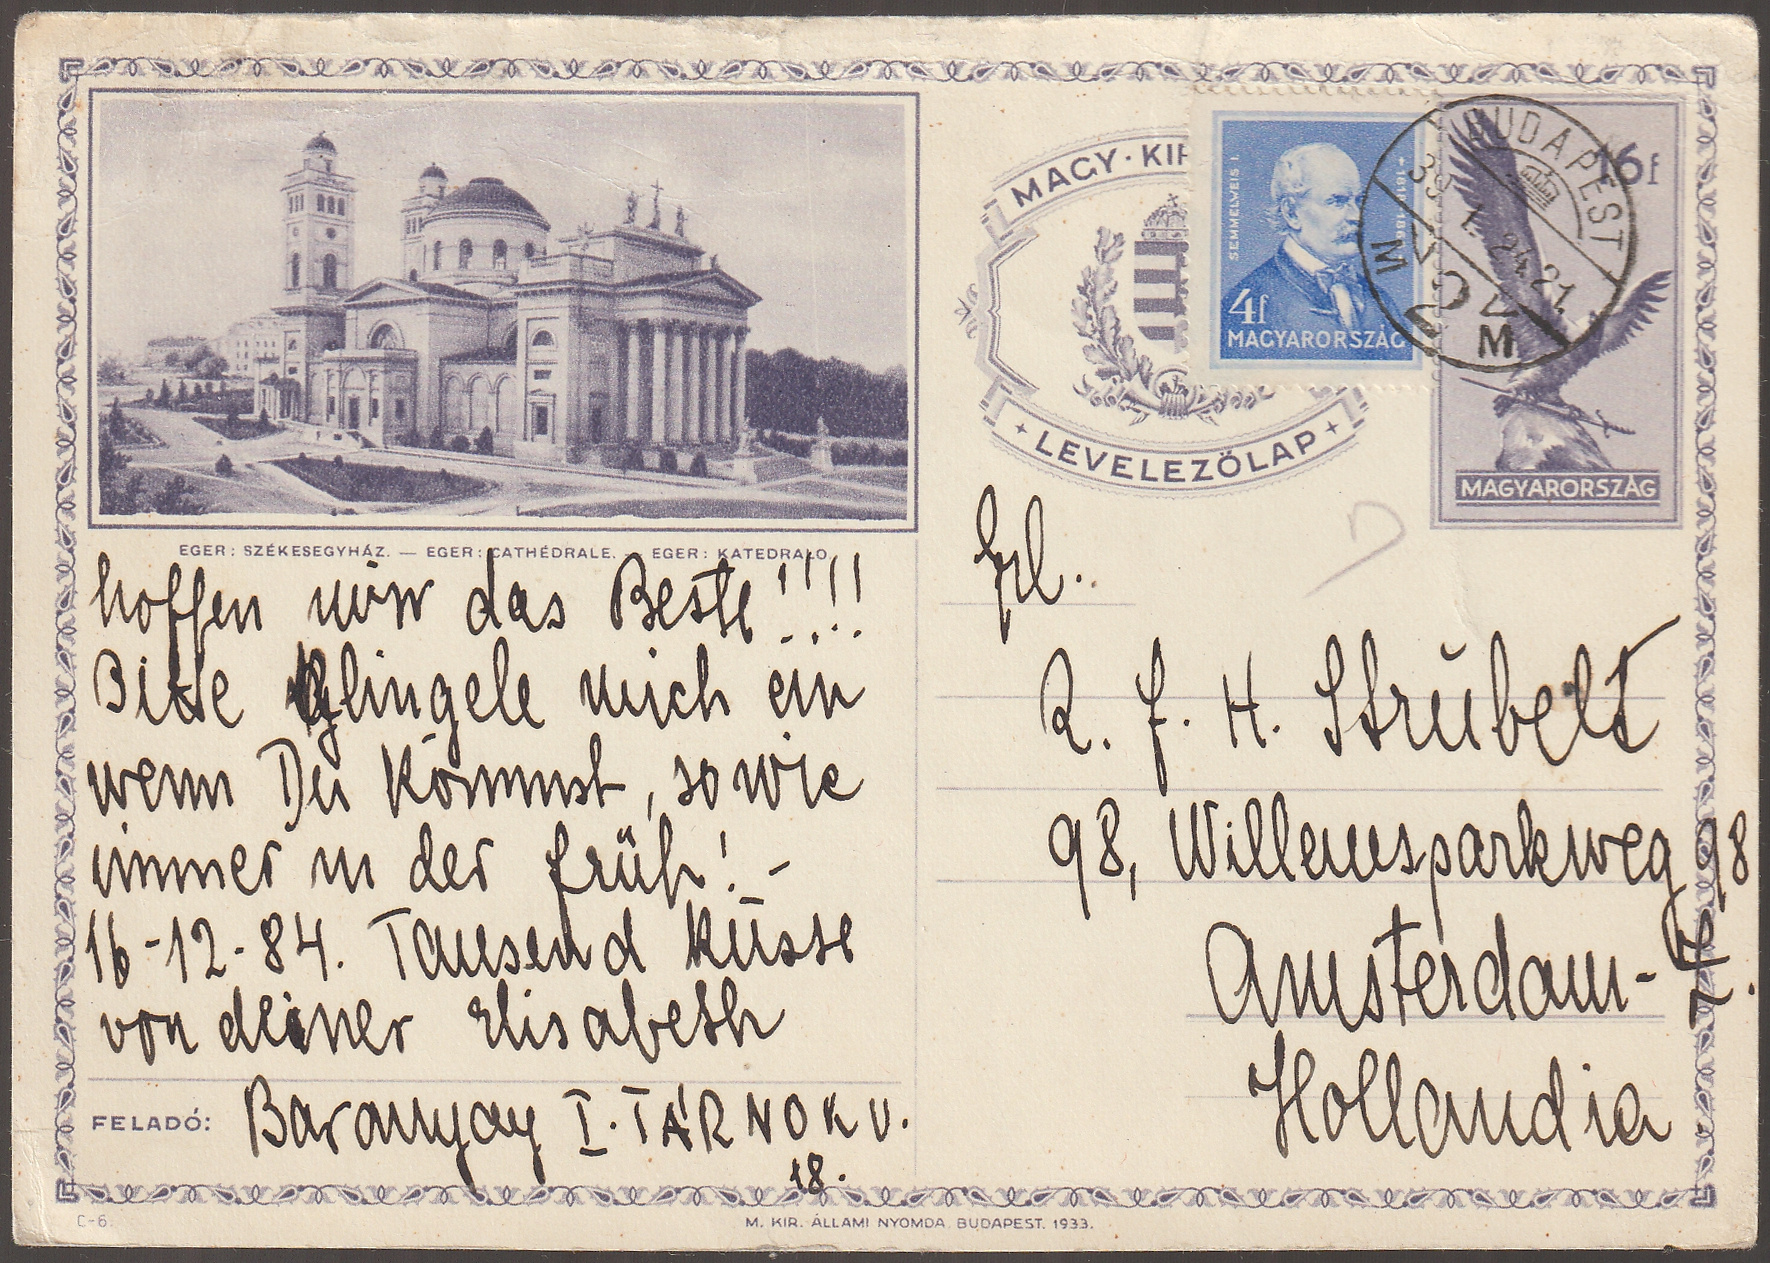 EGER: SZÉKESEGYHÁZ. — EGER: CATHÉDRALE. — EGER: KATEDRALO.
hoffen wir das Beste!!!!
Bitte klingele mich ein
wenn Du kommst, so wie
immer in der früh! -
16-12-84. Tausend Küsse
von deiner Elisabeth
FELADÓ: Baranyay I. TÁRNOK U.
18.
C-6.
M. KIR. ÁLLAMI NYOMDA, BUDAPEST. 1933.
MAGY. KIR
LEVELEZŐLAP
SEMMELWEIS I.
4f
MAGYARORSZÁG
BUDAPEST
39 I. 24. 21
M 2 M
16f
MAGYARORSZÁG
Frl.
R. F. H. Strübelt
98, Willemsparkweg 98
Amsterdam-Z.
Hollandia